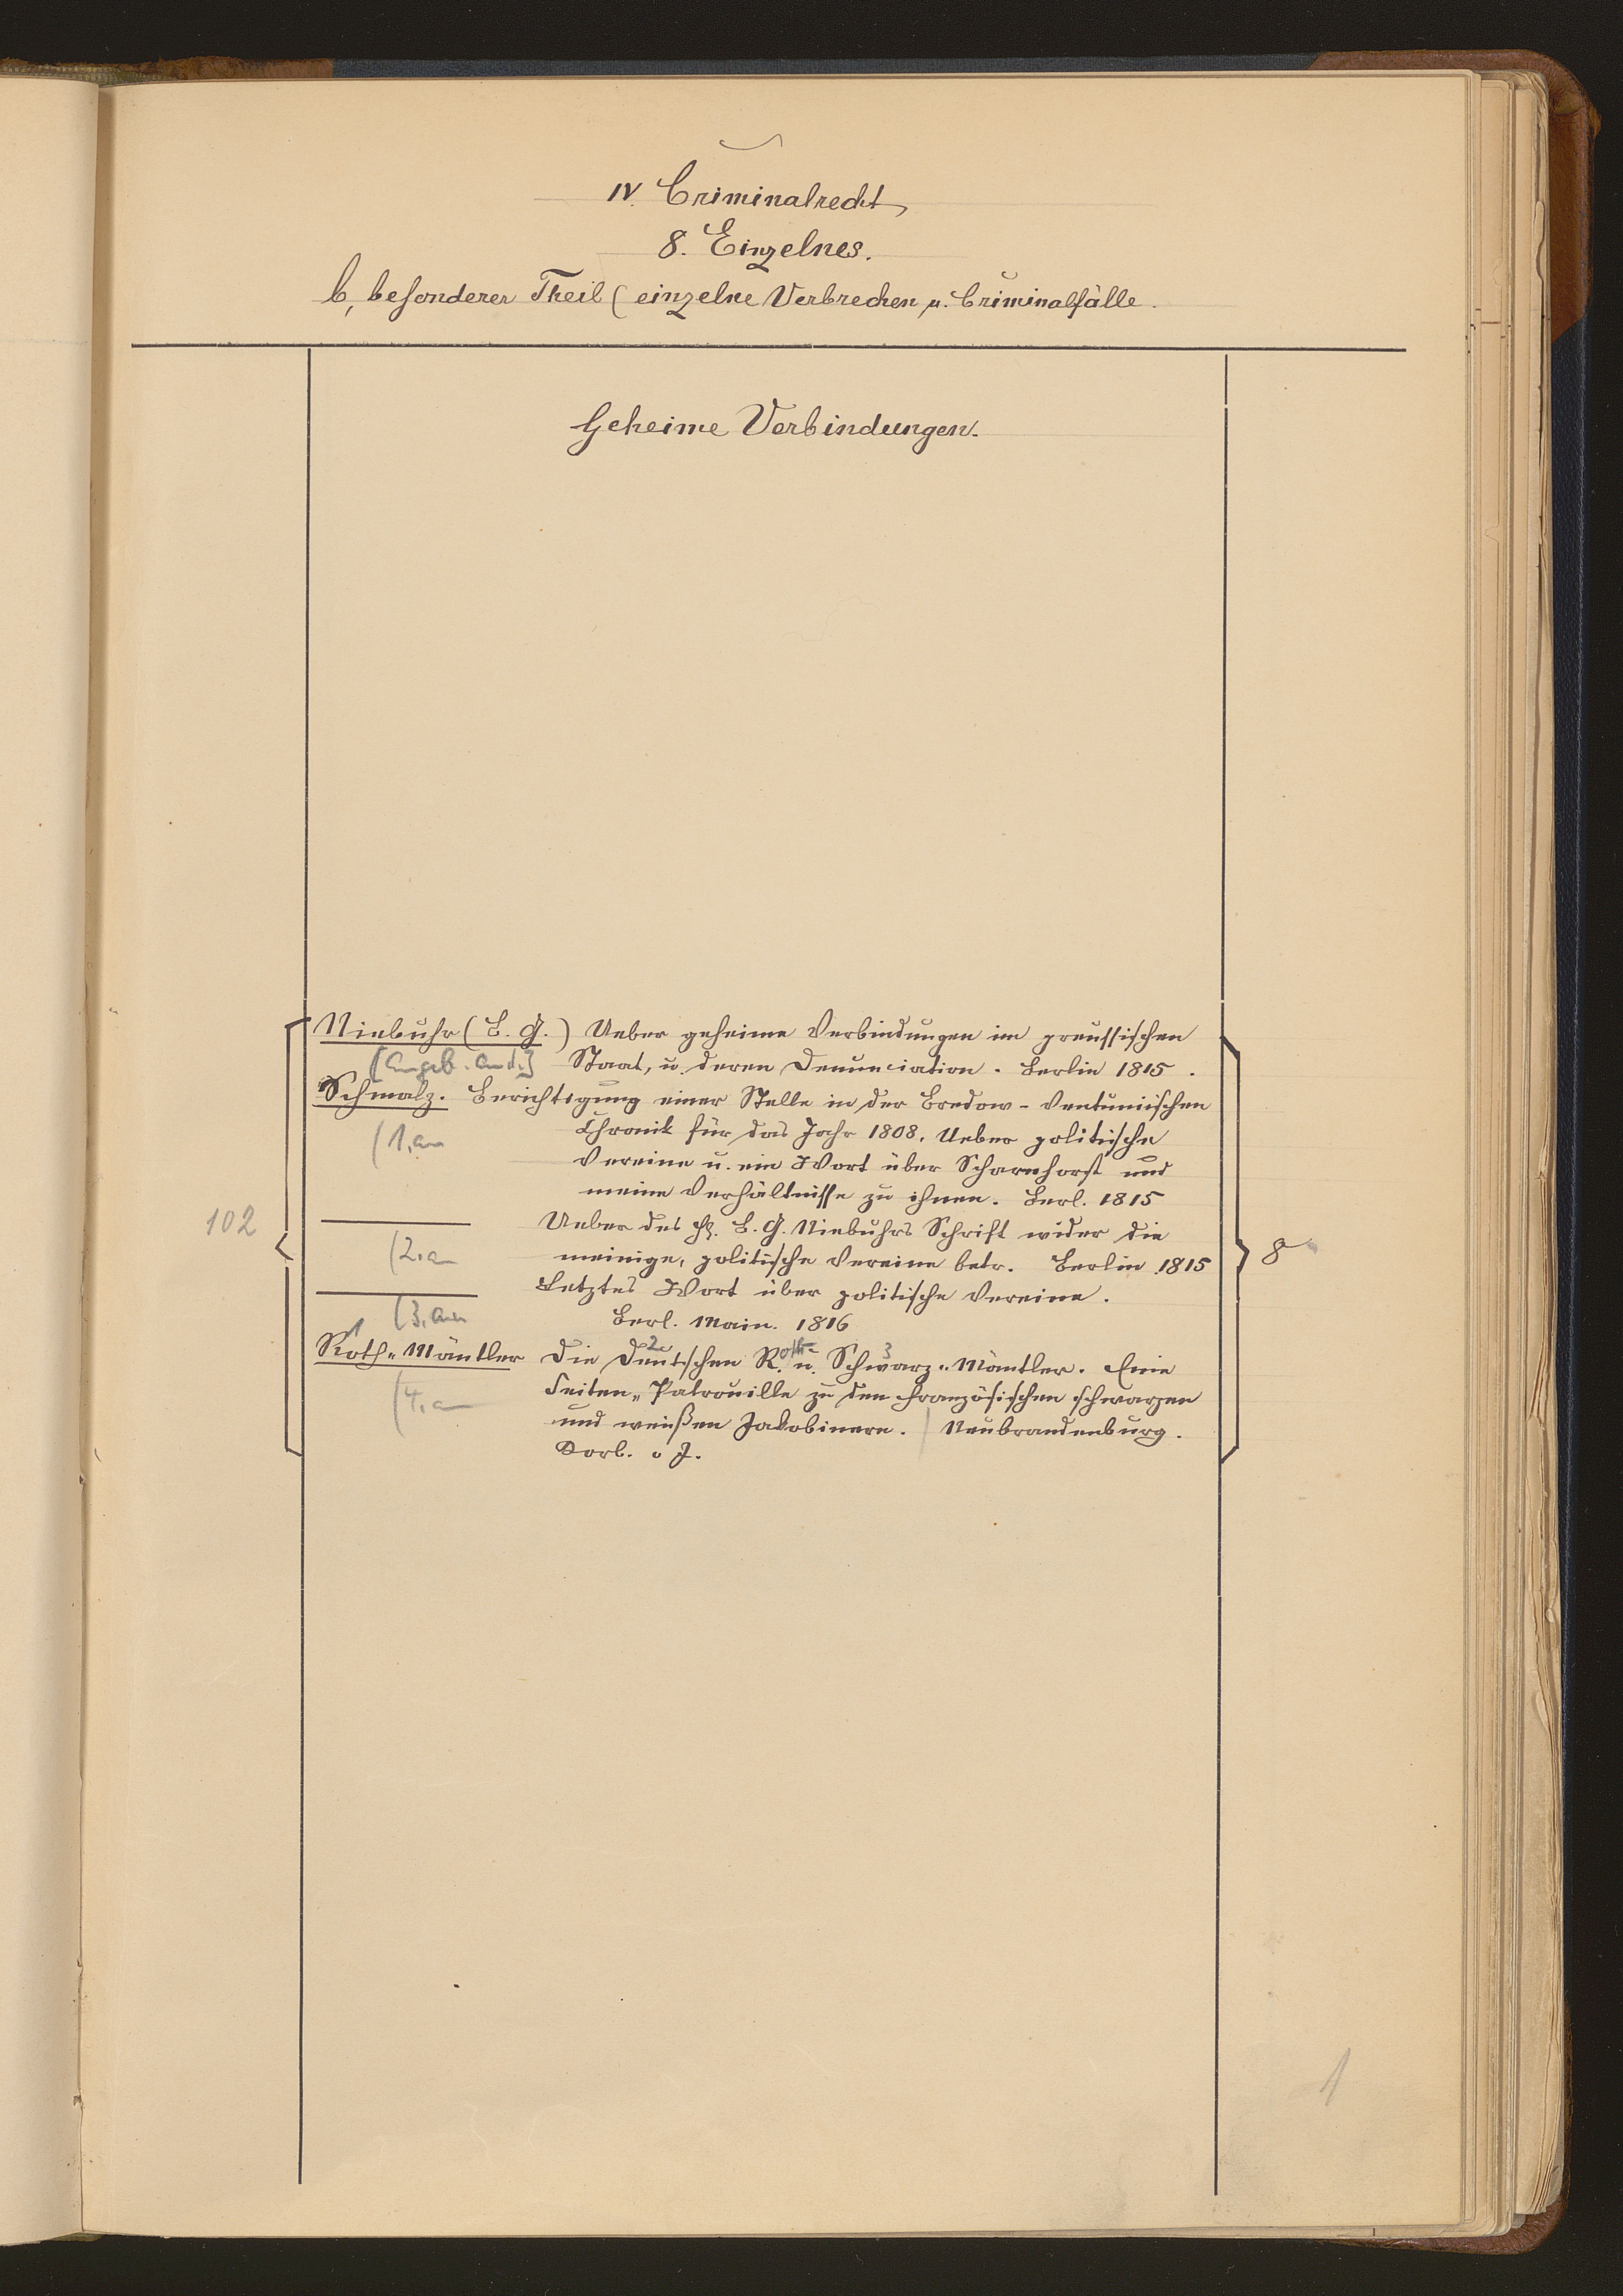 IV. Criminalrecht
8. Einzelnes.
b, besonderer Theil (einzelne Verbrechen u. Criminalfälle.
Geheime Verbindungen.
Niebuhr (B. G.) Ueber geheime Verbindungen im preussischen
[angeb. and.] Staat, u. deren Denunciation. Berlin 1815.
Schmalz. Berichtigung einer Stelle in der Bredow-Venturiischen
(1, an Chronik für das Jahr 1808. Ueber politische
Vereine u. ein Wort über Scharnhorst und
meine Verhältnisse zu ihnen. Berl. 1815
102
Ueber des H. B. G. Niebuhrs Schrift wider die
(2, an meinige, politische Vereine betr. Berlin 1815
8
Letztes Wort über politische Vereine.
(3, an Berl. Main. 1816
1 2 3
Roth-Mäntler Die Deutschen Roth- u. Schwarz-Mäntler. Eine
(4, an Seiten-Patrouille zu den französischen schwarzen
und weißen Jakobinern. Neubrandenburg.
Korb. o J.
1